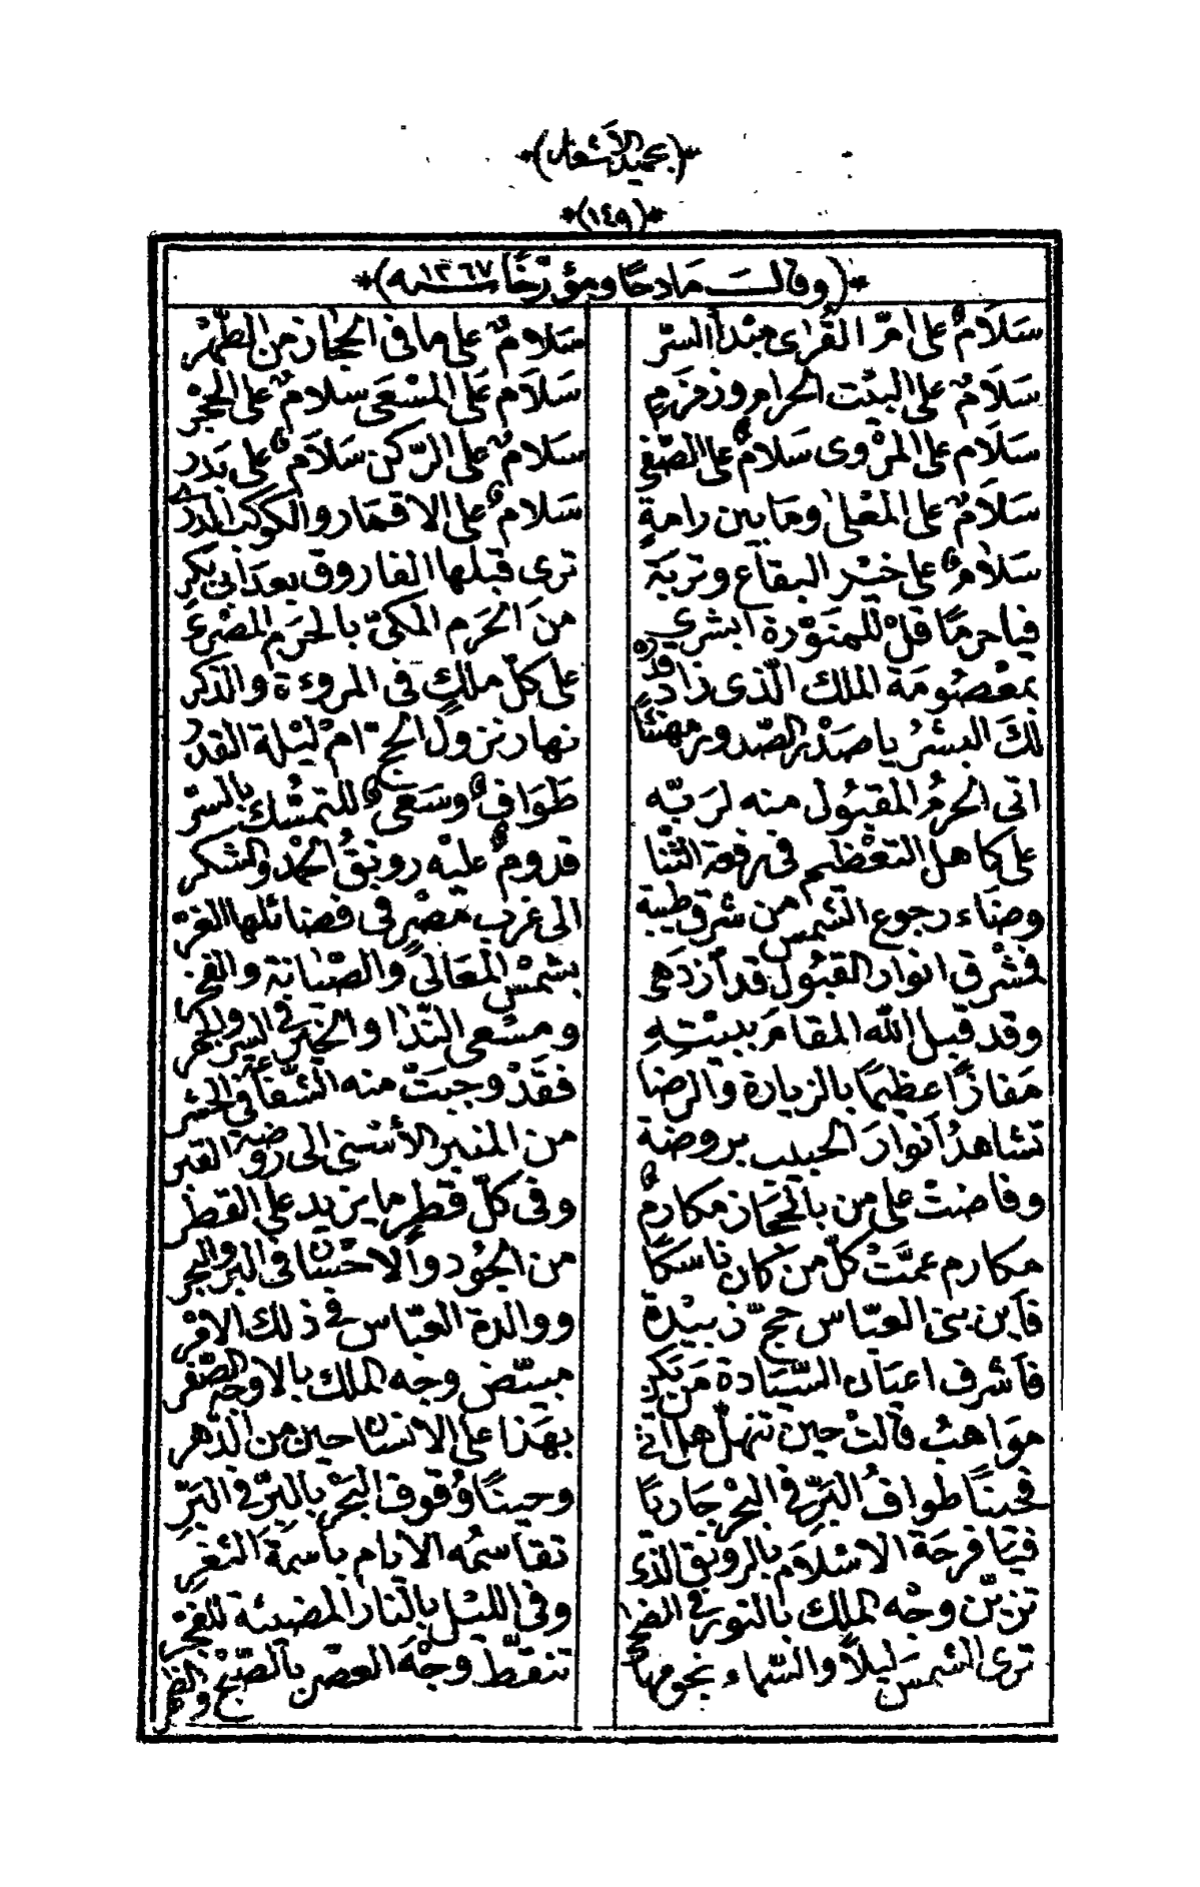 *(بحميد الأشعار)*
*(١٤٩)*
*(وقالت مَادحًا ومؤرّخًا سنه ١٣٦٧)*
سَلَامٌ على اُمّ القُرٰى مبْدأ السّر سَلامٌ على ما فى الحجَاز من الطّهْر
سَلَامٌ على البيْت الحرام وزمْزَمٍ سَلَام عَلى المسْعَى سلامٌ على الحِجْر
سَلَام على المرْوى سَلامٌ على الصّفى سَلامٌ على الرّكن سَلَامٌ على بَدر
سَلَامٌ على المعْلىٰ ومَا بين رامةٍ سَلامٌ على الاقمَار والكوكب الدرّ
سَلَامٌ على خيْر البقاع وتربَة ترى قبْلها الفاروق بعدَ ابى بكر
فيا حرمًا قلْ للمنَوّرة ابشري منَ الحَرم المكىّ بالحَرم المصْرىْ
بمعْصُومَة الملك الّذى زاد قدْره على كلّ ملكٍ فى المروءة والذكر
لكَ البشرُ يا صَدْر الصّدور مهنّئًا نهار نزول الحجّ امْ ليْلة القدْر
اتى الحرمُ المقبُول منه لرَبّه طَوَافٌ وسَعىٌ للتمسُّك بالسّر
على كاهل التعْظيم فى رفعة الثّنا قدومٌ عليْه رونقُ الحمْد والشكر
وضَاء رجوع الشمس من شرق طيبة الى غرب مصْر فى فضائلها الغرّ
فشْرق انوار القبُول قد ازدَهى بشمْس المعَالىْ والصّيانة والفخر
وقد قبل الله المقامَ ببيْتهِ ومسْعى النّدٰا والخيْر فى السر والجهر
مَفازًا عظيمًا بالزيارة والرضا فقَدْ وجبَتْ منه الشّفاعة فى الحشر
تشاهدُ أنوارَ الحبيب بروضة من المنبر الأسْنى الى روضة القبر
وفاضتْ على من بالحجَاز مكارمٌ وفى كلّ قطرٍ ما يزيد على القطر
مكارم عمَّتْ كلّ من كان ناسكًا من الجُود والاحْسَان فى البرّ والبحر
فأين بنى العبّاس حجّ زبيْدة ووالدة العبّاس فى ذلك الامْر
فأشرف اعيَان السّيَادة مَن بَكر مبيّض وجْه الملك بالاوجه الصّفر
موَاهبُ قالتْ حين تنهلّ هل اتى بهَذا على الانسَان حين من الدّهر
فحينًا طواف البَرّ فى البحْر جَاريًا وحينًا وُقوف البَحْر بالبَرّ فى البَرّ
فيَا فرحَة الاسْلَام بالرونق الذى تقاسمُه الايام باسمَة الثغر
تزيّن وجْه الملك بالنور فى الضحٰا وفى الليْل بالنار المضيئة للفجْر
ترى الشمسَ ليلًا والسّماء نجومها تنقّط وجْهَ العصْر بالصّبْح والظهر